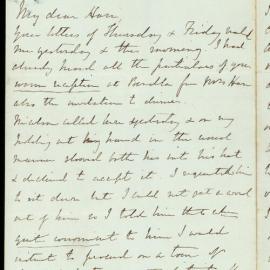 My dear Hare,
Your letters of Thursday & Friday reached
me yesterday & this morning. I had
already heard all the particulars of your
warm reception at from Mrs Hare
also the invitation to dinner.
called here yesterday & on my
holding out my hand in the usual
manner shoved both his into his hat
& declined to accept it. I requested him
to sit down but I could not get a word
out of him so I told him that at a
quiet convenient to him I would
instruct to proceed on a tour of